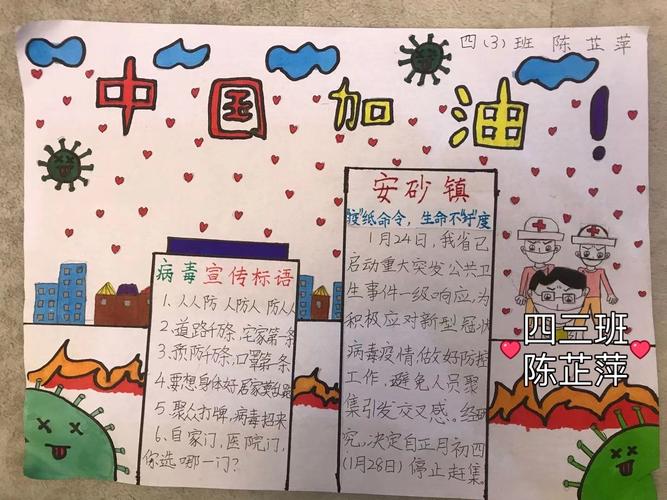 四(3)班 陈芷萍
中国加油!
病毒宣传标语
1、人人防 人防人 防人人
2、道路千万条,宅家第一条
3、预防千万条,口罩第一条
4、要想身体好居家莫乱跑
5、聚众打牌,病毒招来
6、自家门,医院门,
你选哪一门?
安砂镇
"疫"纸命令,生命不"奸"度
1月24日,我省已
启动重大突发公共卫
生事件一级响应,为
积极应对新型冠状
病毒疫情,做好防控
工作,避免人员聚
集引发交叉感。经研
究,决定自正月初四
(1月28日)停止赶集。
四三班
陈芷萍